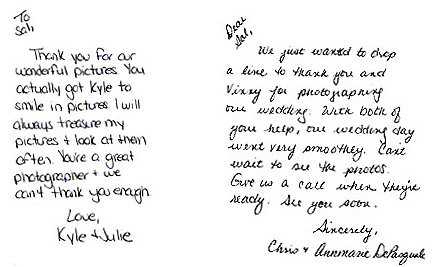 To
Sal,
Thank you for our
wonderful pictures. You
actually got Kyle to
smile in pictures. I will
always treasure my
pictures + look at them
often. You're a great
photographer + we
can't thank you enough.
Love,
Kyle + Julie
Dear
Sal,
We just wanted to drop
a line to thank you and
Vinny for photographing
our wedding. With both of
your help, our wedding day
went very smoothey. Can't
wait to see the photos.
Give us a call when they're
ready. See you soon.
Sincerely,
Chris + Annmarie DePasquale